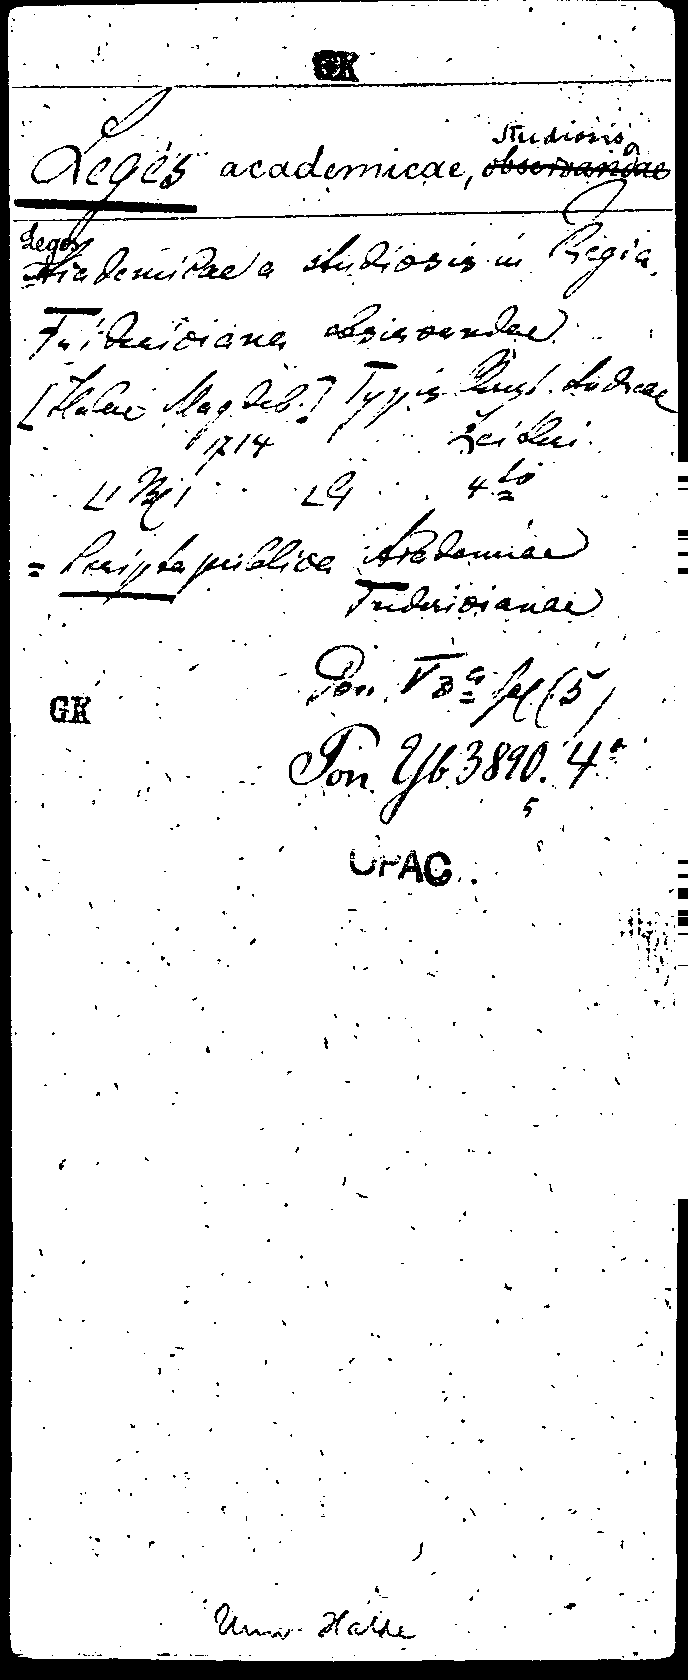 GK
studiosis a
Leges academicae, observandae
Leges
Academicae a studiosis in Regia
Fridericiana observandae
[Halae Magdeb.] Typis Andreae
1714 Zeitleri.
4 Bl 4to
= Scripta publica Academiae
Fridericianae
Pon Vd (5)
GK
Pon Yb 3890. 4°
5
OPAC
Univ. Halle